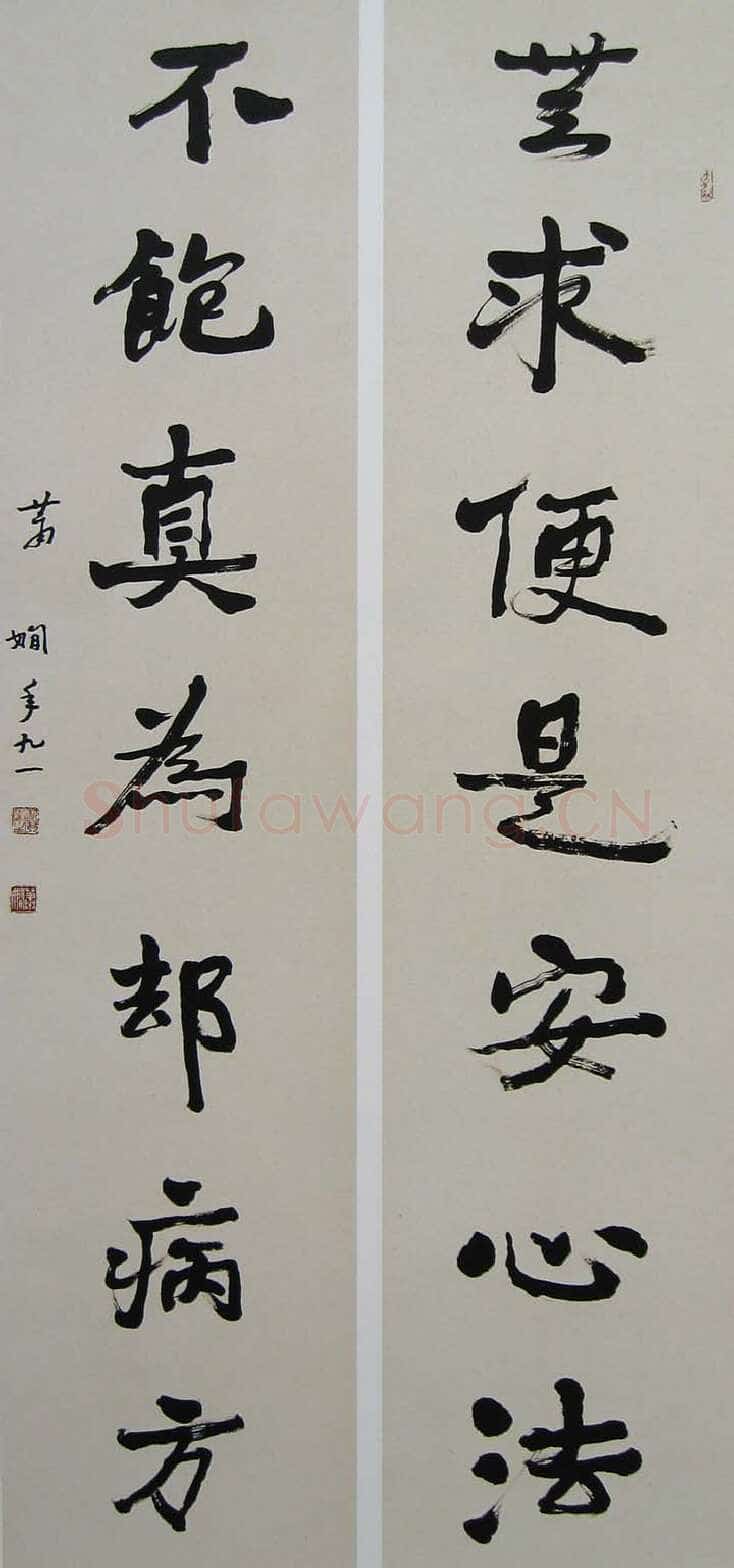 無求便是安心法
不飽真為却病方
蕭嫻年九一
ShufaWang.CN